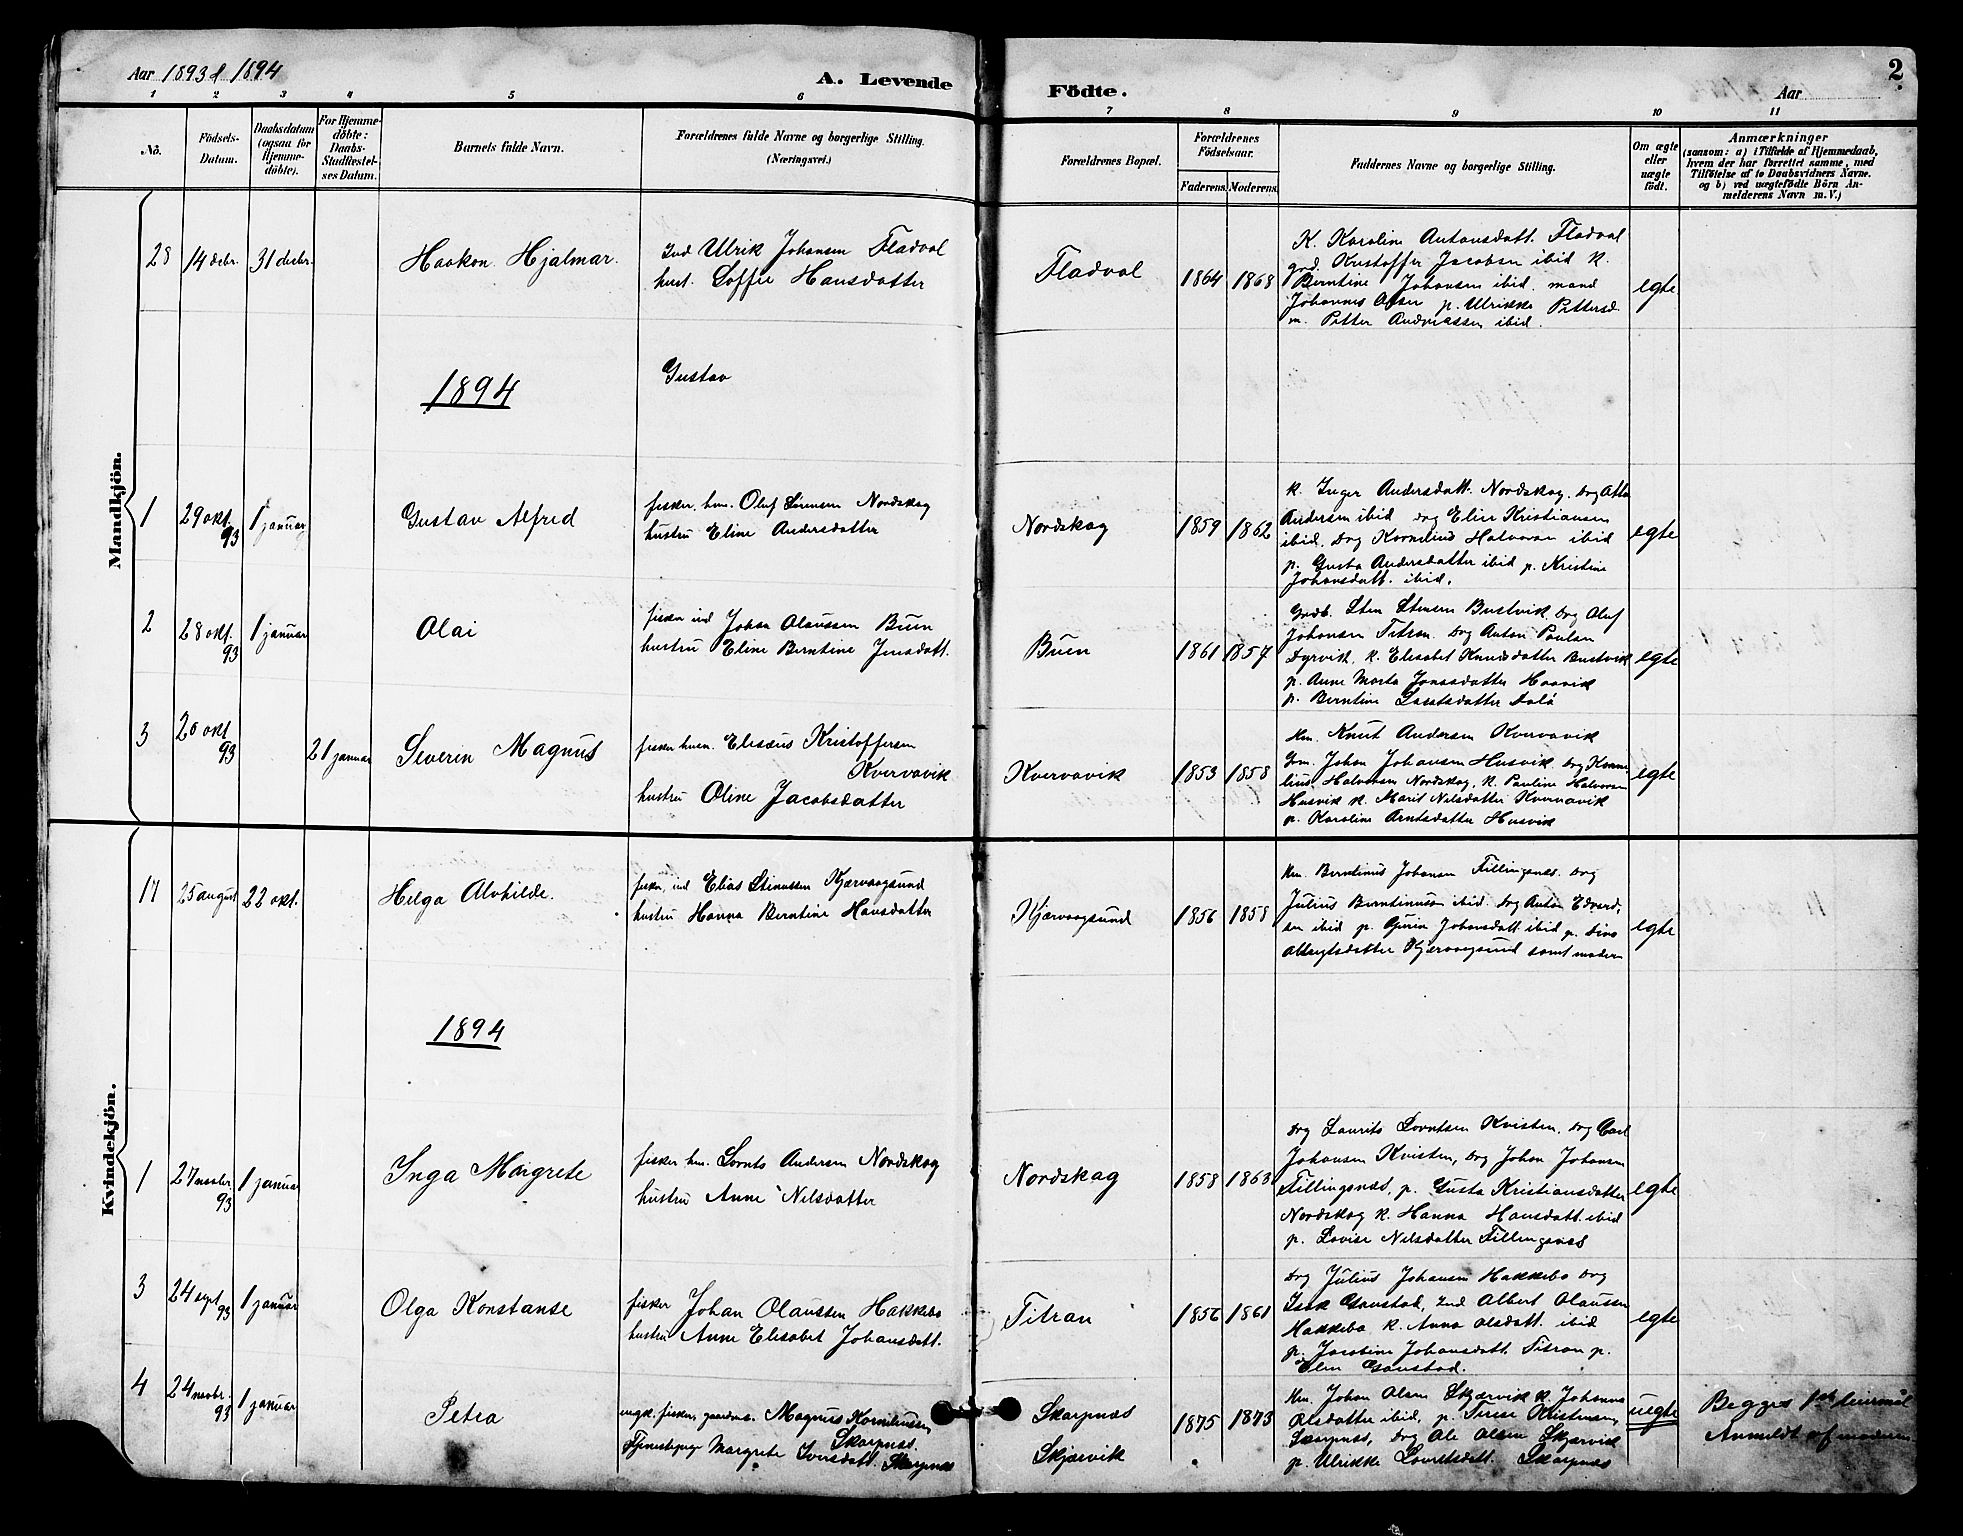 Aar 1893 & 1894
A. Levende Födte.
Aar
2
1 2 3 4 5 6 7 8 9 10 11
No.
Födsels-Datum.
Daabsdatum (ogsaa for Hjemme-döbte).
For Hjemme-döbte: Daabs-Stadfæstelses Datum.
Barnets fulde Navn.
Forældrenes fulde Navne og borgerlige Stilling. (Næringsvei.)
Forældrenes Bopæl.
Forældrenes Födselsaar.
Faderens. Moderens.
Faddernes Navne og borgerlige Stilling.
Om ægte eller uægte födt.
Anmærkninger
(saasom: a) i Tilfælde af Hjemmedaab, hvem der har forrettet samme, med Tilföielse af to Daabsvidners Navne. og b) ved uægtefödte Börn Anmelderens Navn m. V.)
Mandkjön.
28 14 debr. 31 debr. Haakon Hjalmar.
Ind Ulrik Johansen Fladval
hust. Loffie Hansdatter
Fladval 1864 1868
K. Karoline Antonsdatt. Fladval
grd. Kristoffer Jacobsen ibid K.
Berntine Johansen ibid. mand
Johannes Olsen p. Ulrikke Pettersd.
m. Petter Andreassen ibid.
egte
1894
Gustav
1 29 okt. 93 1 januar Gustav Alfred
fisker, hm. Oluf Sørensen Nordskag
hustru Eline Andersdatter
Nordskag 1859 1862
K. Inger Andersdatt. Nordskag. drg Otto
Andersen ibid drg Elier Kristiansen
ibid. drg Kornelius Halvorsen ibid
p. Gusta Andersdatter ibid p. Kristine
Johansdatt. ibid.
egte
2 28 okt. 93 1 januar Olai
fisker ind Johan Olaussen Buen
hustru Eline Berntine Jensdatt.
Buen 1861 1857
Grdb. Sten Stensen Bustvik drg Oluf
Johansen Titran drg Anton Paulsen
Dyrvik, K. Elisabet Knudsdatter Bustvik
p. Anne Marta Jonasdatter Haavik
p. Berntine datter
egte
3 20 okt 93 21 januar Severin Magnus
fisker husm. Elisæus Kristoffersen
Kvervavik
hustru Oline Jacobsdatter
Kvervavik 1853 1858
Hm. Knut Andersen Kvervavik
Gm. Johan Johansen Husvik drg Korne-
lius Halvorsen Nordskag, K. Pauline Halvorsen
Husvik K. Marit Nilsdatter Kvervavik
p. Karoline Arntsdatter Husvik
egte
Kvindekjön.
17 25 august 22 okt. Helga Alvhilde.
fisker, ind Elias Stenussen Kjærvaagsund
hustru Hanna Berntine Hansdatter
Kjærvaagsund 1856 1858
Hm. Berntinus Johansen Fillingsnes drg
Julius Berntinusen ibid. drg Anton Edvard-
sen ibid p. Gurin Johansdatt. ibid p. Dina
Albregtsdatter Kjærvaagsund samt moderen
egte
1894
1 27 novbr. 93 1 januar Inga Margrete
fisker hm. Lornts Andersen Nordskag
hustru Anne Nilsdatter
Nordskag 1858 1863
drg Laurits Lorntsen Kvisten, drg Carl
Johansen Kvisten, drg Johan Johansen
Fillingsnæs, p. Gusta Kristiansdatter
Nordskag K. Hanna Hansdatt. ibid
p. Lovise Nilsdatter Fillingsnæs
egte
3 24 sept 93 1 januar Olga Konstanse
fisker Johan Olaussen Hakkebo
hustru Anne Elisabet Johansdatt.
Titran 1856 1861
drg Julius Johansen Hakkebo drg
Isak Gaustad, Ind Albert Olaussen
Hakkebo K. Anna Olsdatt. ibid
p. Jacobine Johansdatt. Titran p.
Elen Gaustad.
egte
4 24 novbr. 93 1 januar Petra
ungk. fisker, gaardm. Magnus Korneliussen
Skarpnæs
Tjenestepige Margrete Iversdatt. Skarpnæs
Skarpnæs
Skjærvik
1875 1873
Hm. Johan Olsen Skjærvik K. Johanna
Olsdatter ibid, p. Kristensen,
Skarpnæs, drg Ole Olsen Skjærvik
p. Ulrikke Lorntsdatt. Skarpnæs
uegte
Begges 1ste leiermål
Anmeldt af moderen